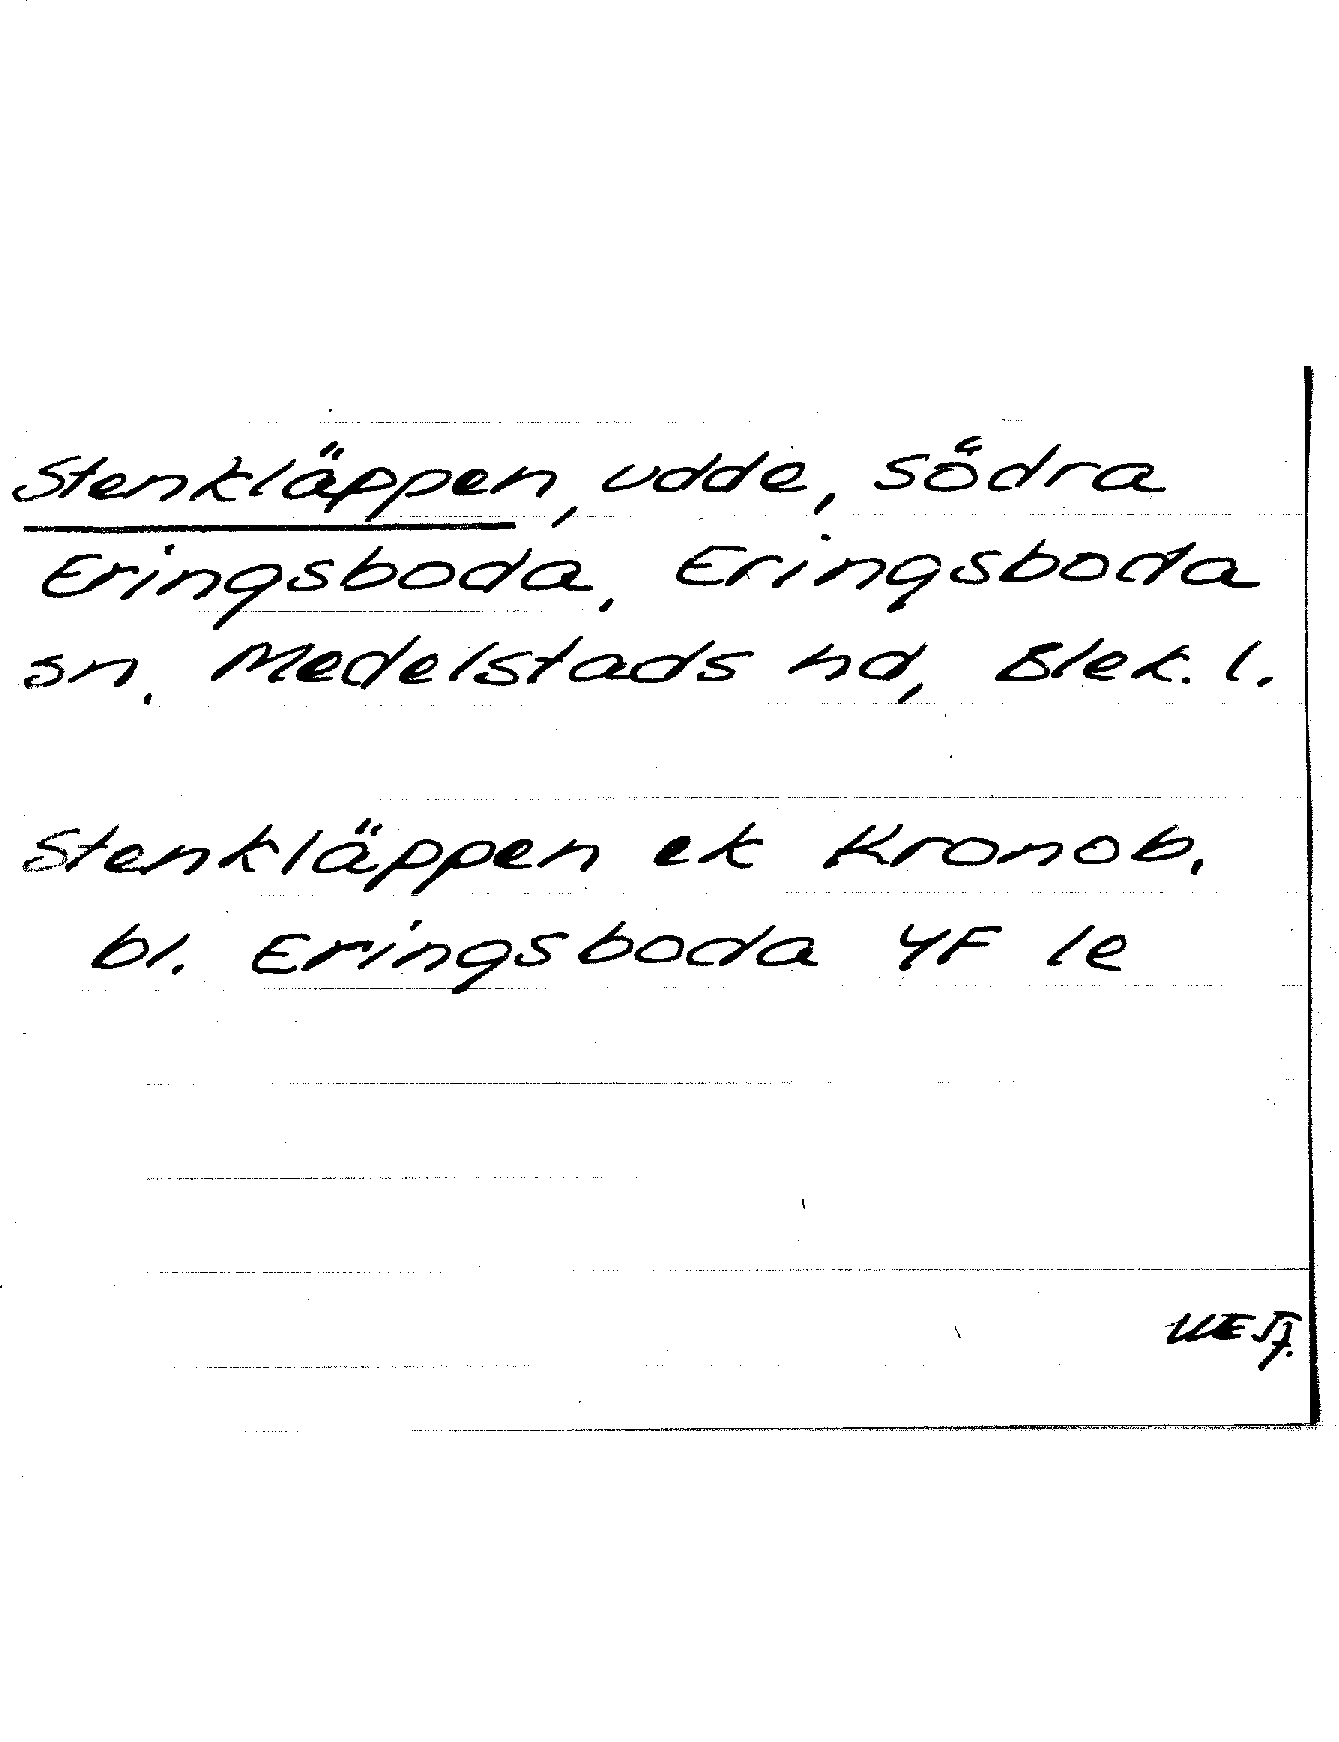 Stenkläppen, udde, södra
Eringsboda, Eringsboda
sn, Medelstads hd, Blek. l.
Stenkläppen ek Kronob.
bl. Eringsboda 4F le